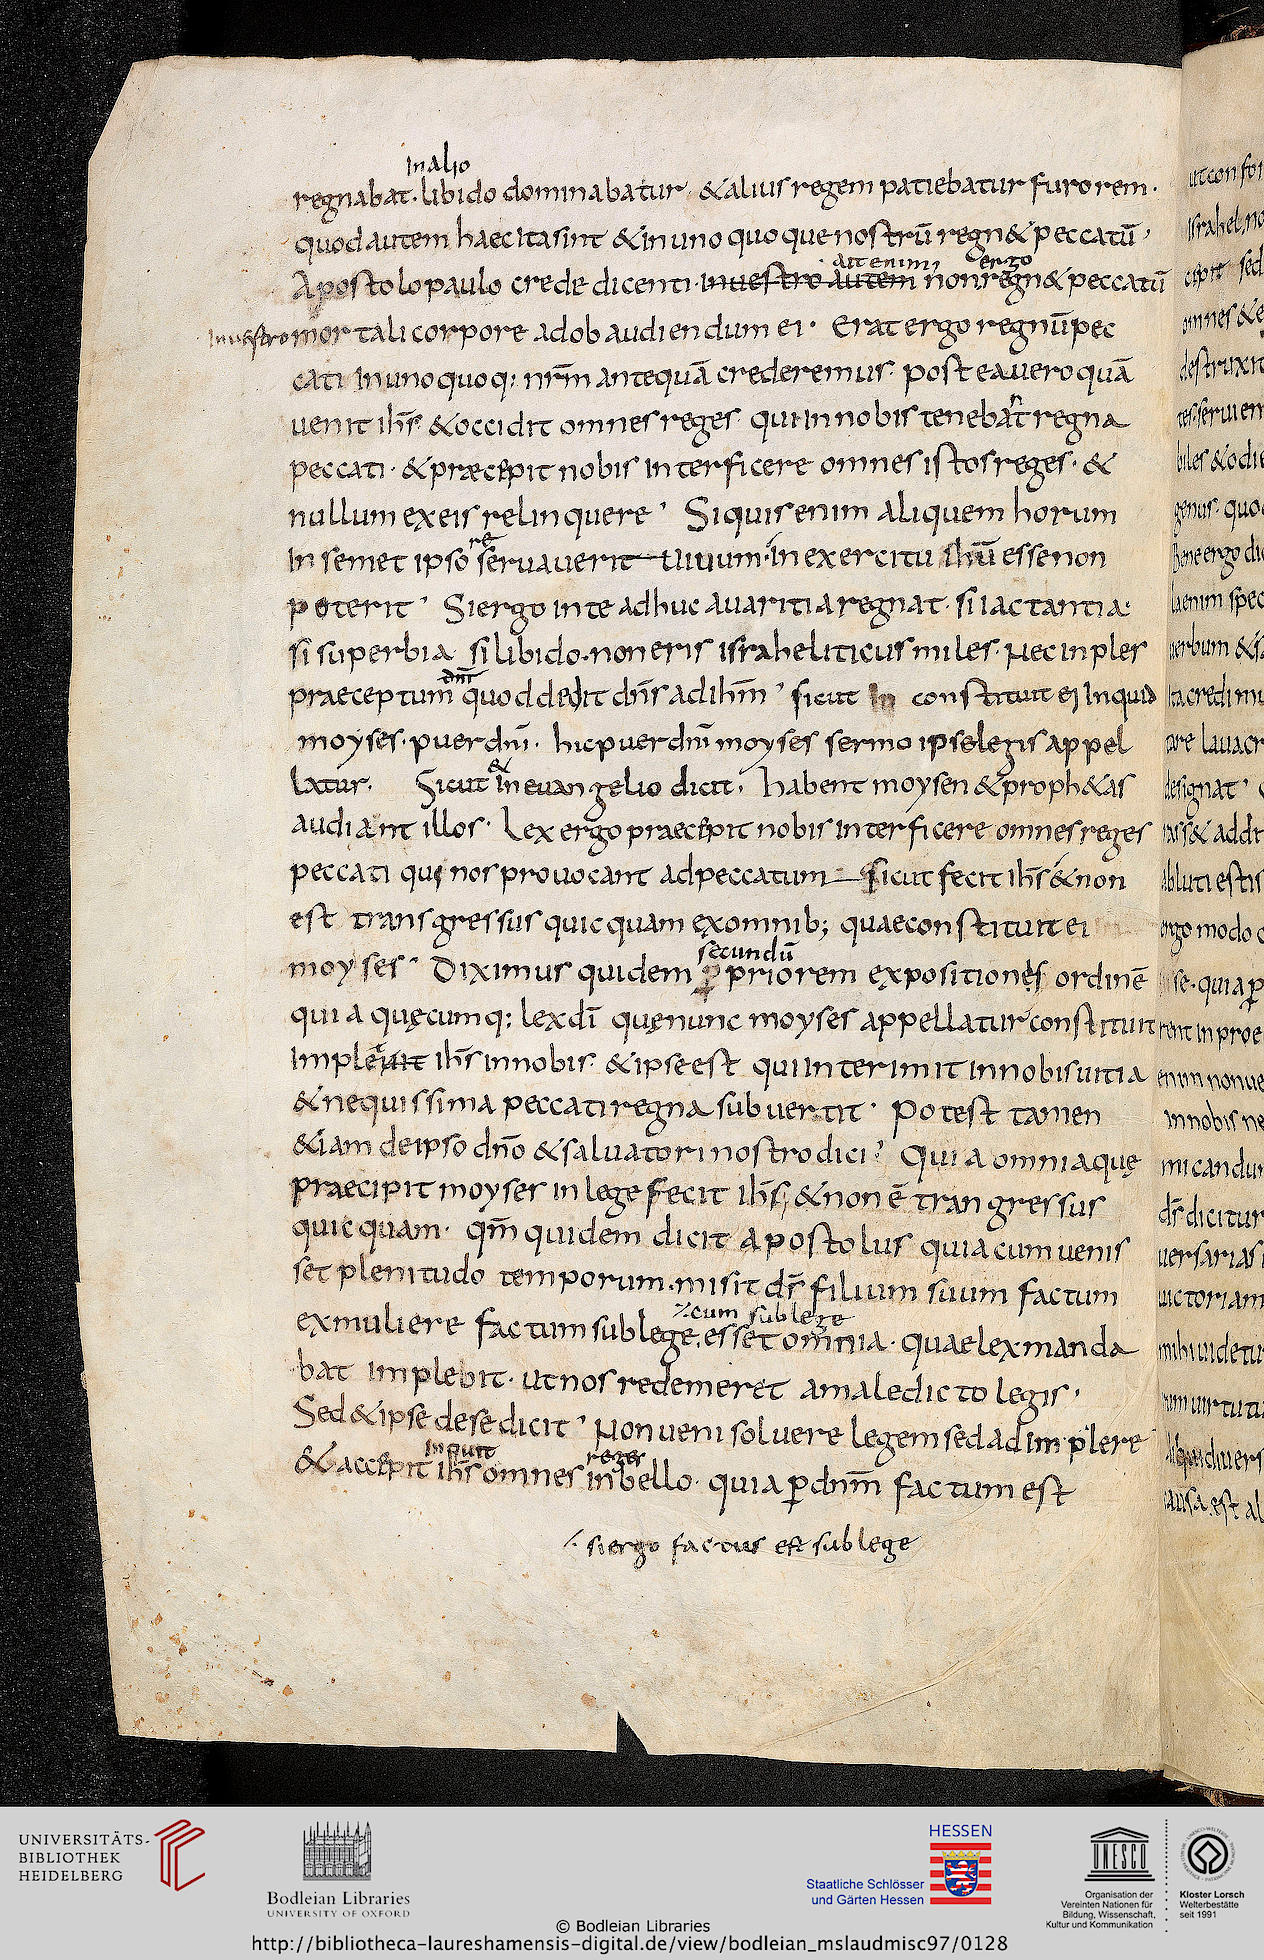 in alio
regnabat. libido dominabatur. & alius regem patiebatur furorem.
quod autem haec ita sint & in uno quoque nostrū regn& peccatū,
ait enim, ergo
Apostolo paulo crede dicenti. in uestro autem non regn& peccatū
in uestro mortali corpore ad obaudiendum ei. Erat ergo regnū pec
cati in uno quoq; nrm̄ antequā crederemus. postea uero quā
uenit ihs̄. & occidit omnes reges. qui in nobis tenebat regna
peccati. & praecepit nobis interficere omnes istos reges. &
nullum ex eis relinquere, Si quis enim aliquem horum
re
in semet ipso seruauerit uiuum. in exercitu ihū esse non
poterit, Si ergo in te adhuc auaritia regnat. si iactantia.
si superbia si libido. non eris israheliticus miles. Nec inples
dn̄s
praeceptum quod dedit dn̄s ad ihm̄, sicut in constituit ei inquid
moyses. puer dnī. hic puer dnī moyses sermo ipse legis appel
&
latur. Sicut in euangelio dicit, habent moysen & proph&as
audiant illos. Lex ergo praecepit nobis interficere omnes reges
peccati qui nos prouocant ad peccatum Sicut fecit ihs̄ & non
est transgressus quicquam ex omnib; quae constituit ei
secundū
moyses, Diximus quidem p priorem expositiones ordinē
quia quęcumq; lex dī quę nunc moyses appellatur constituit
impleuit ihs̄ in nobis. & ipse est qui interimit in nobis uitia
& nequissima peccati regna subuertit. Potest tamen
& iam de ipso dn̄o & saluatori nostro dici, Quia omnia quę
praecipit moyses in lege fecit ihs̄, & non ē trangressus
quicquam. qm̄ quidem dicit apostolus quia cum uenis
set plenitudo temporum. misit ds̄ filium suum factum
cum sub lege
ex muliere factum sub lege, esset omnia. quae lex manda
bat implebit. ut nos redemeret a maledicto legis,
Sed & ipse de se dicit, Non ueni soluere legem sed adimplere
inquit reges
& accepit ihs̄ omnes in bello. quia p dnm̄ factum est
si ergo factus est sub lege
UNIVERSITÄTS-
BIBLIOTHEK
HEIDELBERG
Bodleian Libraries
UNIVERSITY OF OXFORD
HESSEN
Staatliche Schlösser
und Gärten Hessen
UNESCO
Organisation der
Vereinten Nationen für
Bildung, Wissenschaft,
Kultur und Kommunikation
Kloster Lorsch
Welterbestätte
seit 1991
© Bodleian Libraries
http://bibliotheca-laureshamensis-digital.de/view/bodleian_mslaudmisc97/0128